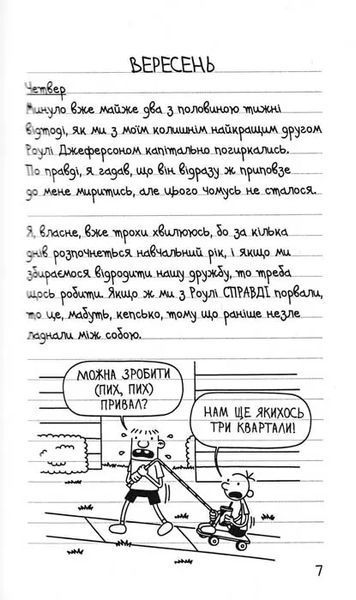 ВЕРЕСЕНЬ
Четвер
Минуло вже майже два з половиною тижні
відтоді, як ми з моїм колишнім найкращим другом
Роулі Джеферсоном капітально погиркались.
По правді, я гадав, що він відразу ж приповзе
до мене миритись, але цього чомусь не сталося.
Я, власне, вже трохи хвилююсь, бо за кілька
днів розпочнеться навчальний рік, і якщо ми
збираємося відродити нашу дружбу, то треба
щось робити. Якщо ж ми з Роулі СПРАВДІ порвали,
то це, мабуть, кепсько, тому що раніше незле
ладнали між собою.
МОЖНА ЗРОБИТИ
(ПИХ, ПИХ)
ПРИВАЛ?
НАМ ЩЕ ЯКИХОСЬ
ТРИ КВАРТАЛИ!
7